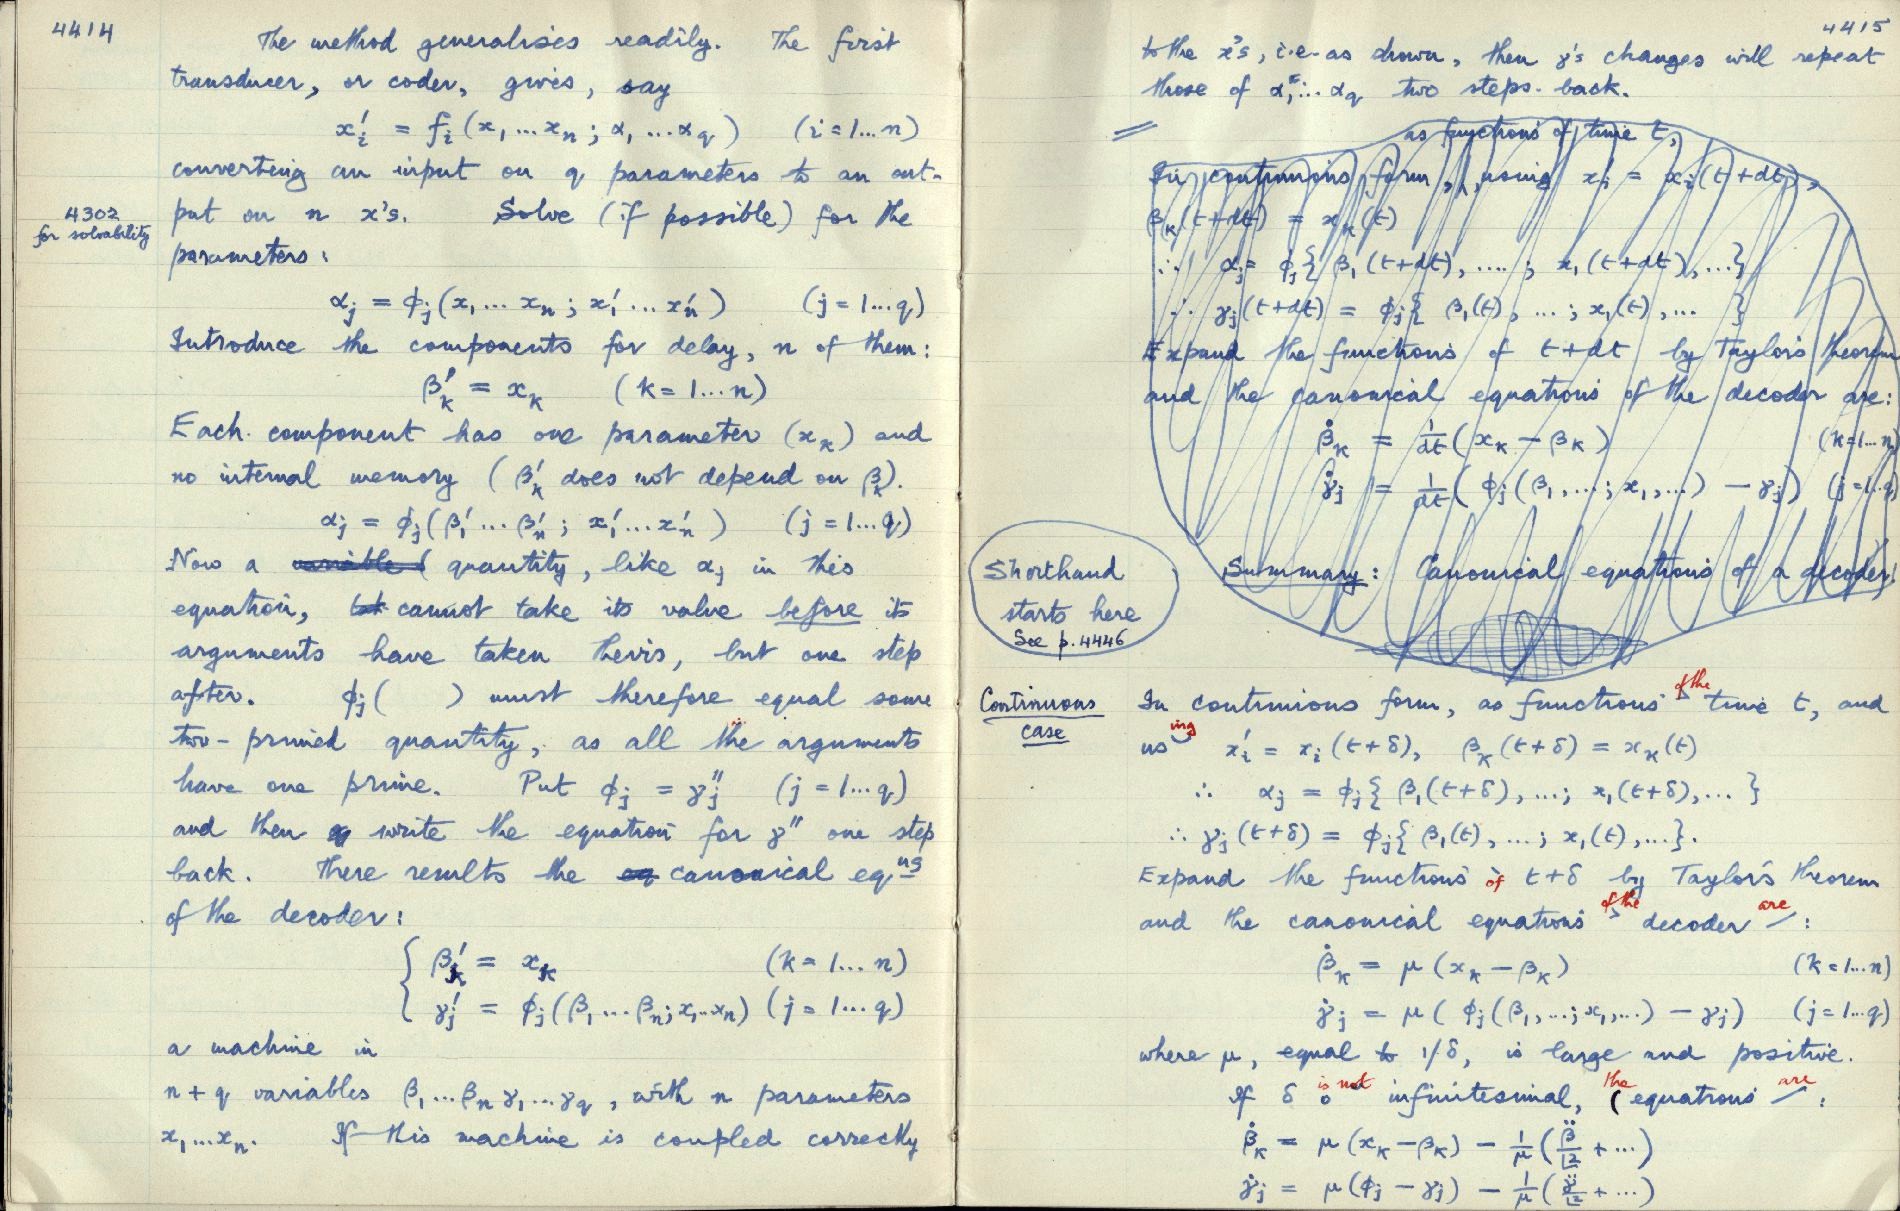 4414
The method generalises readily. The first
transducer, or coder, gives, say
x'i = fi(x1...xn; α1...αq) (i = 1...n)
converting an input on q parameters to an out-
put on n x's. Solve (if possible) for the
4302
for solvability
parameters:
αj = ϕj(x1...xn; x'1...x'n) (j = 1...q)
Introduce the components for delay, n of them:
β'k = xk (k = 1...n)
Each component has one parameter (xk) and
no internal memory (β'k does not depend on βk).
αj = ϕj(β'1...β'n; x'1...x'n) (j = 1...q)
Now a variable quantity, like αj in this
equation, cannot take its value before its
arguments have taken theirs, but one step
after. ϕj( ) must therefore equal some
two-primed quantity, as all the arguments
have one prime. Put ϕj = γ''j (j = 1...q)
and then write the equation for γ'' one step
back. There results the eq canonical eqns
of the decoder:
β'k = xk (k = 1...n)
γ'j = ϕj(β1...βn; x1...xn) (j = 1...q)
a machine in
n + q variables β1...βn γ1...γq, with n parameters
x1...xn. If this machine is coupled correctly
4415
to the x's, i.e. as shown, then γ's changes will repeat
those of α1...αq two steps back.
as functions of time t,
In continuous form, using x'i = xi(t+dt),
βk(t+dt) = xk(t)
∴ αj = ϕj{β1(t+dt), ....; x1(t+dt), ...}
∴ γj(t+dt) = ϕj{β1(t), ...; x1(t), ... }
Expand the functions of t+dt by Taylor's theorem
and the canonical equations of the decoder are:
β̇k = 1/dt (xk − βk) (k=1...n)
γ̇j = 1/dt (ϕj(β1,...; x1,...) − γj) (j=1...q)
Summary: Canonical equations of a decoder
Shorthand
starts here
See p.4446
Continuous
case
In continuous form, as functions of the time t, and
using x'i = xi(t+δ), βk(t+δ) = xk(t)
∴ αj = ϕj{β1(t+δ), ...; x1(t+δ), ... }
∴ γj(t+δ) = ϕj{β1(t), ...; x1(t), ...}.
Expand the functions of t+δ by Taylor's theorem
and the canonical equations of the decoder are:
β̇k = μ(xk − βk) (k=1...n)
γ̇j = μ(ϕj(β1,...; x1,...) − γj) (j=1...q)
where μ, equal to 1/δ, is large and positive.
If δ is not infinitesimal, the equations are:
β̇k = μ(xk − βk) − 1/μ (β̈/⌊2 + ...)
γ̇j = μ(ϕj − γj) − 1/μ (γ̈/⌊2 + ...)